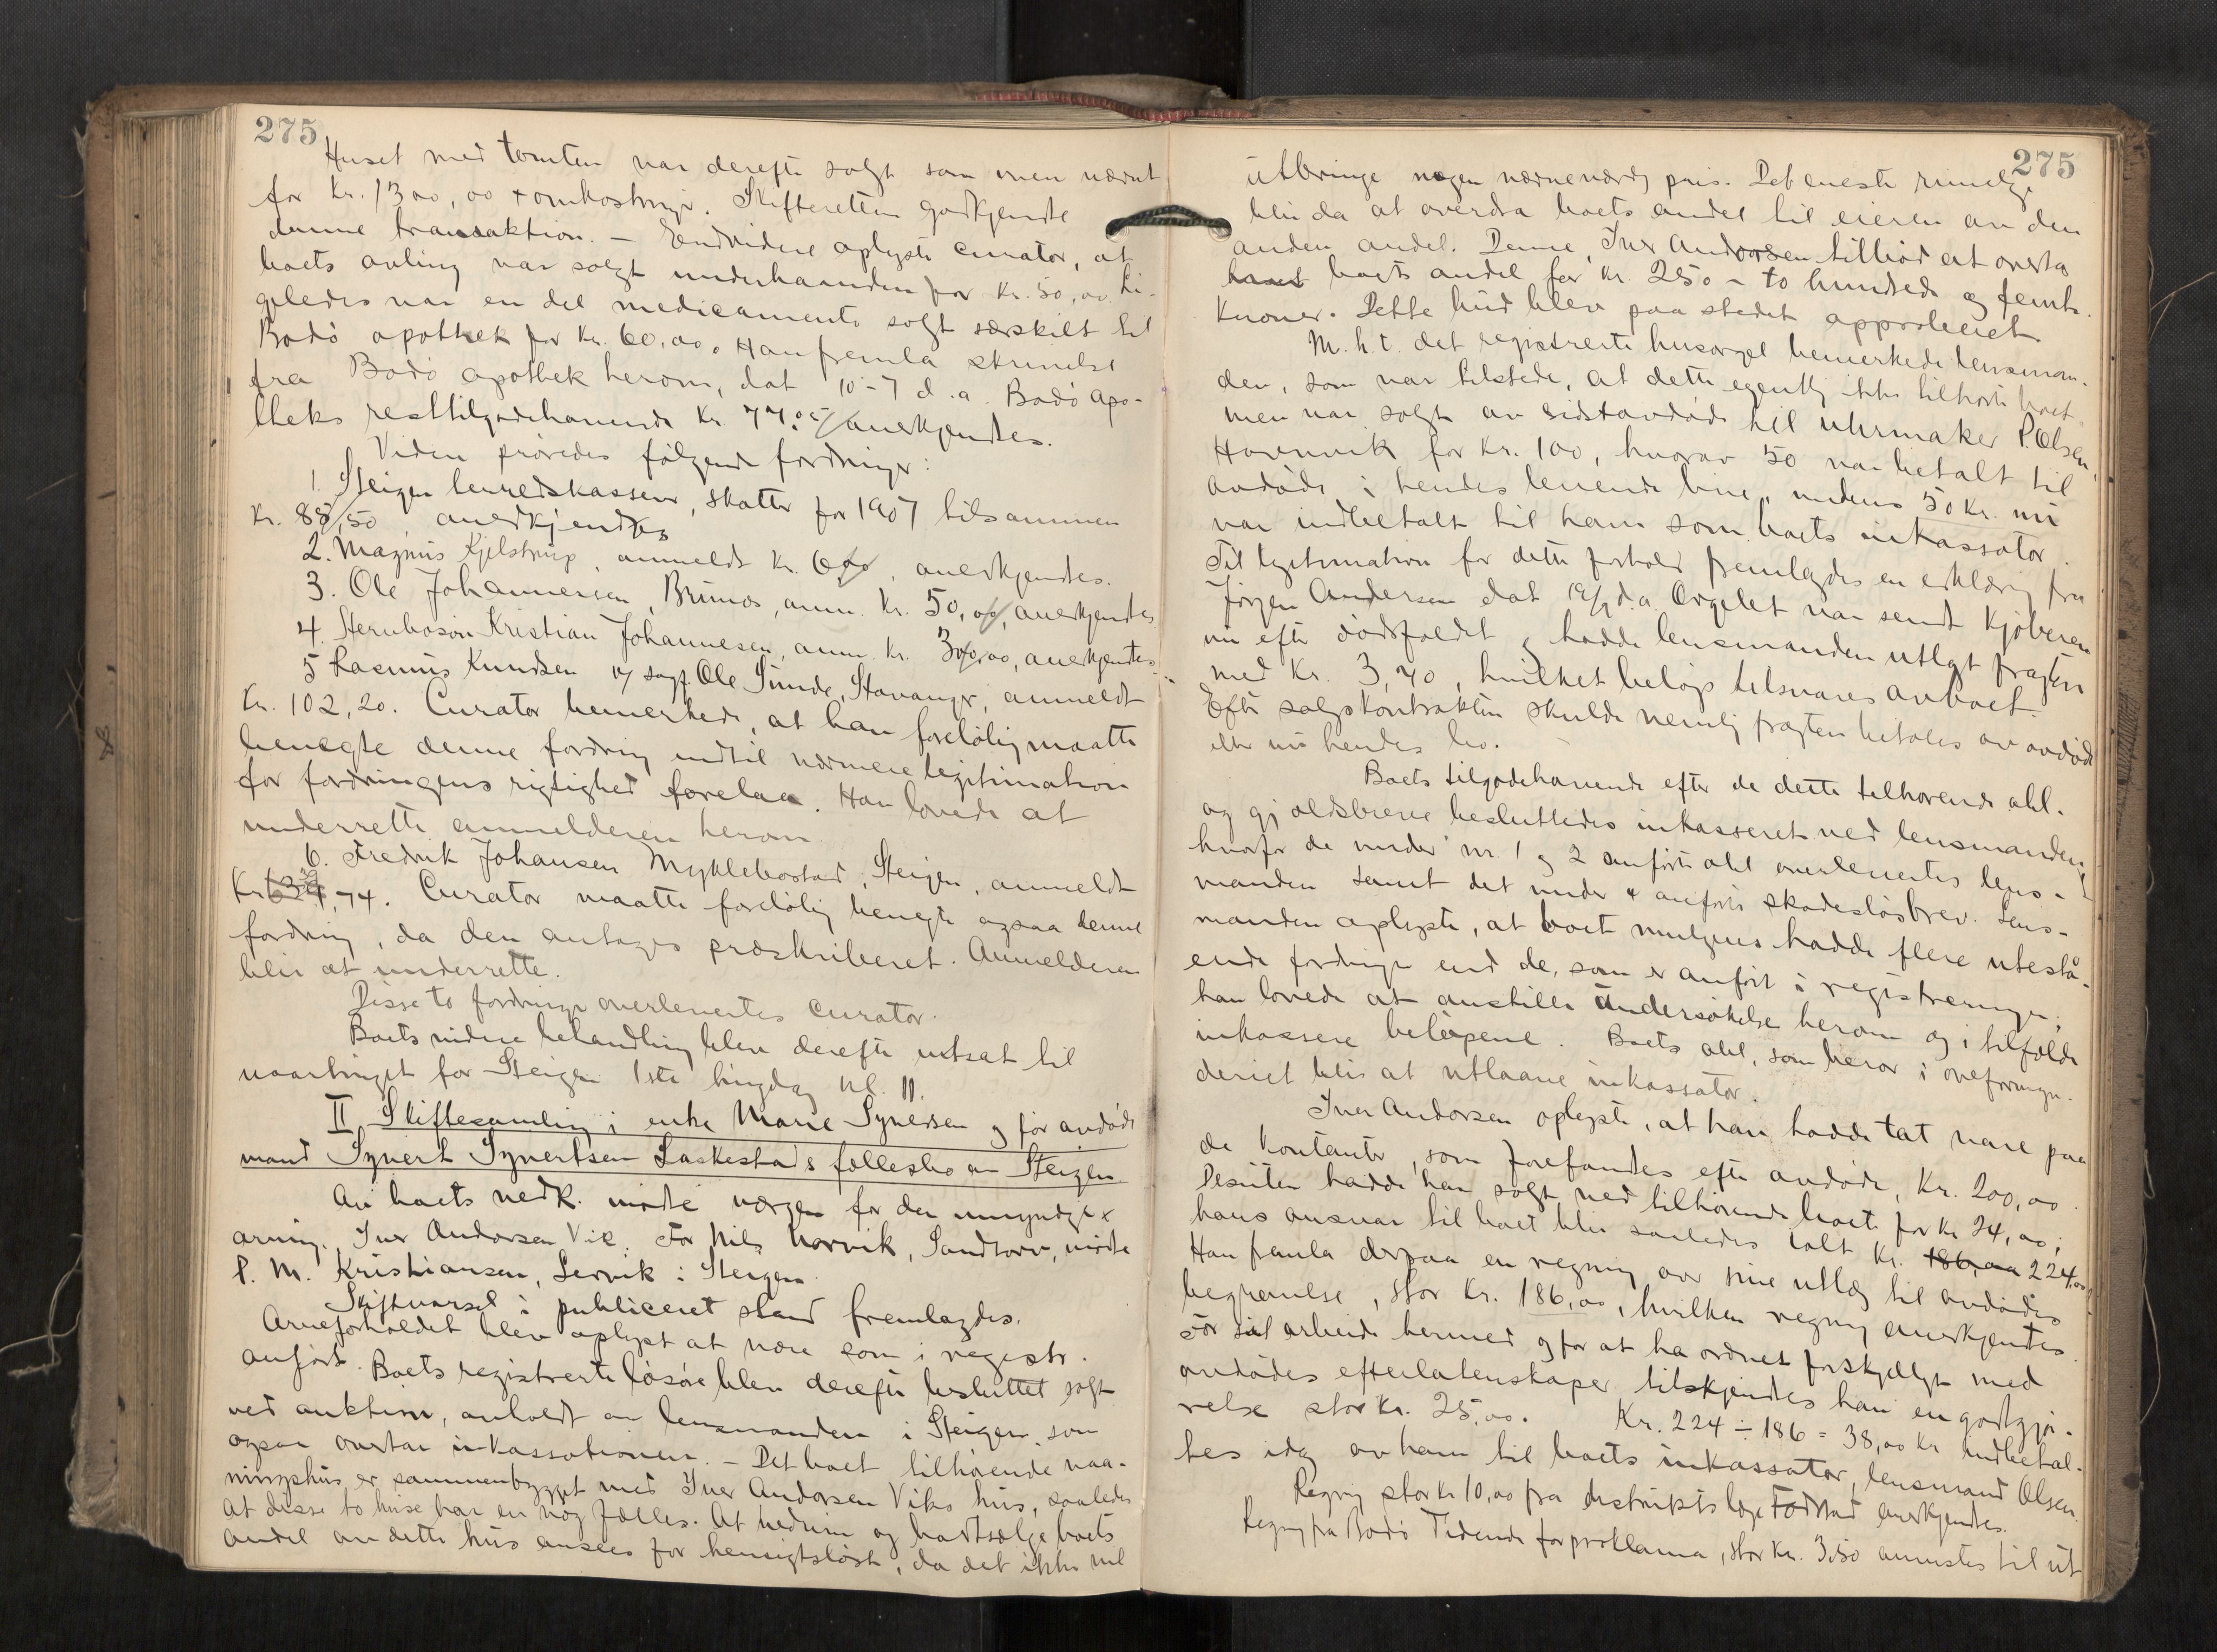 275
Huset med tomten var derefter solgt som ovennævnt
for Kr. 1300,00 + omkostninger. Skifteretten godkjendte
denne transaktion. – Endvidere oplyste curator, at
boets avling var solgt underhaanden for Kr. 50,00. Li-
geledes var en del medicamenter solgt særskilt til
Bodö apothek for Kr. 60,00. Han fremla skrivelse
fra Bodö apothek herom, dat 10-7 d.a. Bodö apo-
theks resttilgodehavende Kr. 77.05 anerkjendtes.
Videre prövedes fölgende fordringer:
1. Steigen herredskasserer, skatter for 1907 tilsammen
Kr. 88,50 anerkjendtes
2. Magnus Kjelstrup, anmeldt Kr. 6,00, anerkjendtes.
3. Ole Johannesen, Brunos, anm. Kr. 50,00, anerkjendtes
4. Kristian Johannesen, anm. Kr. 300,00, anerkjendtes.
5 Rasmus Knudsen v/ sagf. Ole Sunde, Stavanger, anmeldt
Kr. 102,20. Curator bemerkede, at han forelöbig maatte
benegte denne fordring indtil nærmere legitimation
for fordringens rigtighed forelaa. Han lovede at
underrette anmelderen herom
6. Fredrik Johansen Myklebostad, Steigen, anmeldt
Kr. 74. Curator maatte forelöbig benegte ogsaa denne
fordring, da den antages præskriberet. Anmelderen
blir at underrette.
Disse to fordringer overlevertes curator.
Boets videre behandling blev derefter utsat til
vaartinget for Steigen 1ste tingdag kl. 11.
II Skiftesamling i enke Marie Syversen og för avdöde
mand Syvert Syvertsen Laskestads fællesbo av Steigen
Av boets vedk. mötte værgen for den umyndige
arving, Iver Andorsen Vik. For Nils Norvik, Sandtorv, mötte
P. M. Kristiansen, Lervik i Steigen.
Skiftvarsel i publiceret stand fremlagdes.
Arveforholdet blev oplyst at være som i registr.
anfört. Boets registrerte lösöre blev derefter besluttet solgt
ved auktion, avholdt av lensmanden i Steigen, som
ogsaa overtar inkassationen. – Det boet tilhörende vaa-
ningshus er sammenbygget med Iver Andorsen Viks hus, saaledes
at disse to huse har en væg fælles. At nedrive og bortsælge boets
andel av dette hus ansees for hensigtslöst, da det ikke vil
275
utbringe nogen nævneværdig pris. Det eneste rimelige
blir da at overdra boets andel til eieren av den
anden andel. Denne, Iver Andorsen tilböd at overta
boets andel for Kr. 250 – to hundrede og femti
Kroner. Dette bud blev paa stedet approberet
M.h.t. det registrerte husorgel bemerkede lensman-
den, som var tilstede, at dette egentlig ikke tilhörte boet
men var solgt av sidstavdöde til uhrmaker P. Olsen,
Havnvik for Kr. 100, hvorav 50 var betalt til
avdöde i hendes levende live, medens 50 Kr. nu
var indbetalt til ham som boets inkassator
Til legitimation for dette forhold fremlagdes en erklæring fra
Jörgen Andersen dat 19/7 d.a. Orgelet var sendt kjöberen
nu efter dödsfaldet og hadde lensmanden utlagt fragten
med Kr. 3,70, hvilket belöp tilsvares av boet.
Efter salgskontrakten skulde nemlig fragten betales av avdöde
eller nu hendes bo.
Boets tilgodehavende efter de dette tilhörende obl.
og gjældsbreve besluttedes inkasseret ved lensmanden,
hvorfor de under nr. 1 og 2 anförte obl overlevertes lens-
manden samt det under 4 anförte skadeslösbrev. Lens-
manden oplyste, at boet muligens hadde flere utestå-
ende fordringer end de, som er anfört i registreringen,
han lovede at anstille undersökelse herom og i tilfælde
inkassere belöpene. Boets obl, som beror i overformyn-
deriet blir at utlaane inkassator.
Iver Andorsen oplyste, at han hadde tat vare paa
de kontanter, som forefandtes efter avdöde, Kr. 200,00
Desuten hadde han solgt ved tilhörende boet for Kr 24,00;
hans ansvar til boet blir saaledes ialt Kr. 186,00 224,00
Han fremla derpaa en regning over sine utlæg til avdödes
begravelse, stor Kr. 186,00, hvilken regning anerkjendtes
For sit arbeide hermed og for at ha ordnet forskjelligt med
avdödes efterlatenskaper tilskjendtes han en godtgjö-
relse stor Kr. 25,00. Kr. 224 ÷ 186 = 38,00 Kr indbetal-
tes idag av ham til boets inkassator, lensmand Olsen.
Regning stor Kr 10,00 fra distriktslæge Todstad anerkjendtes.
Regning fra Bodö Tidende for proklama, stor Kr. 3,50 anvistes til ut